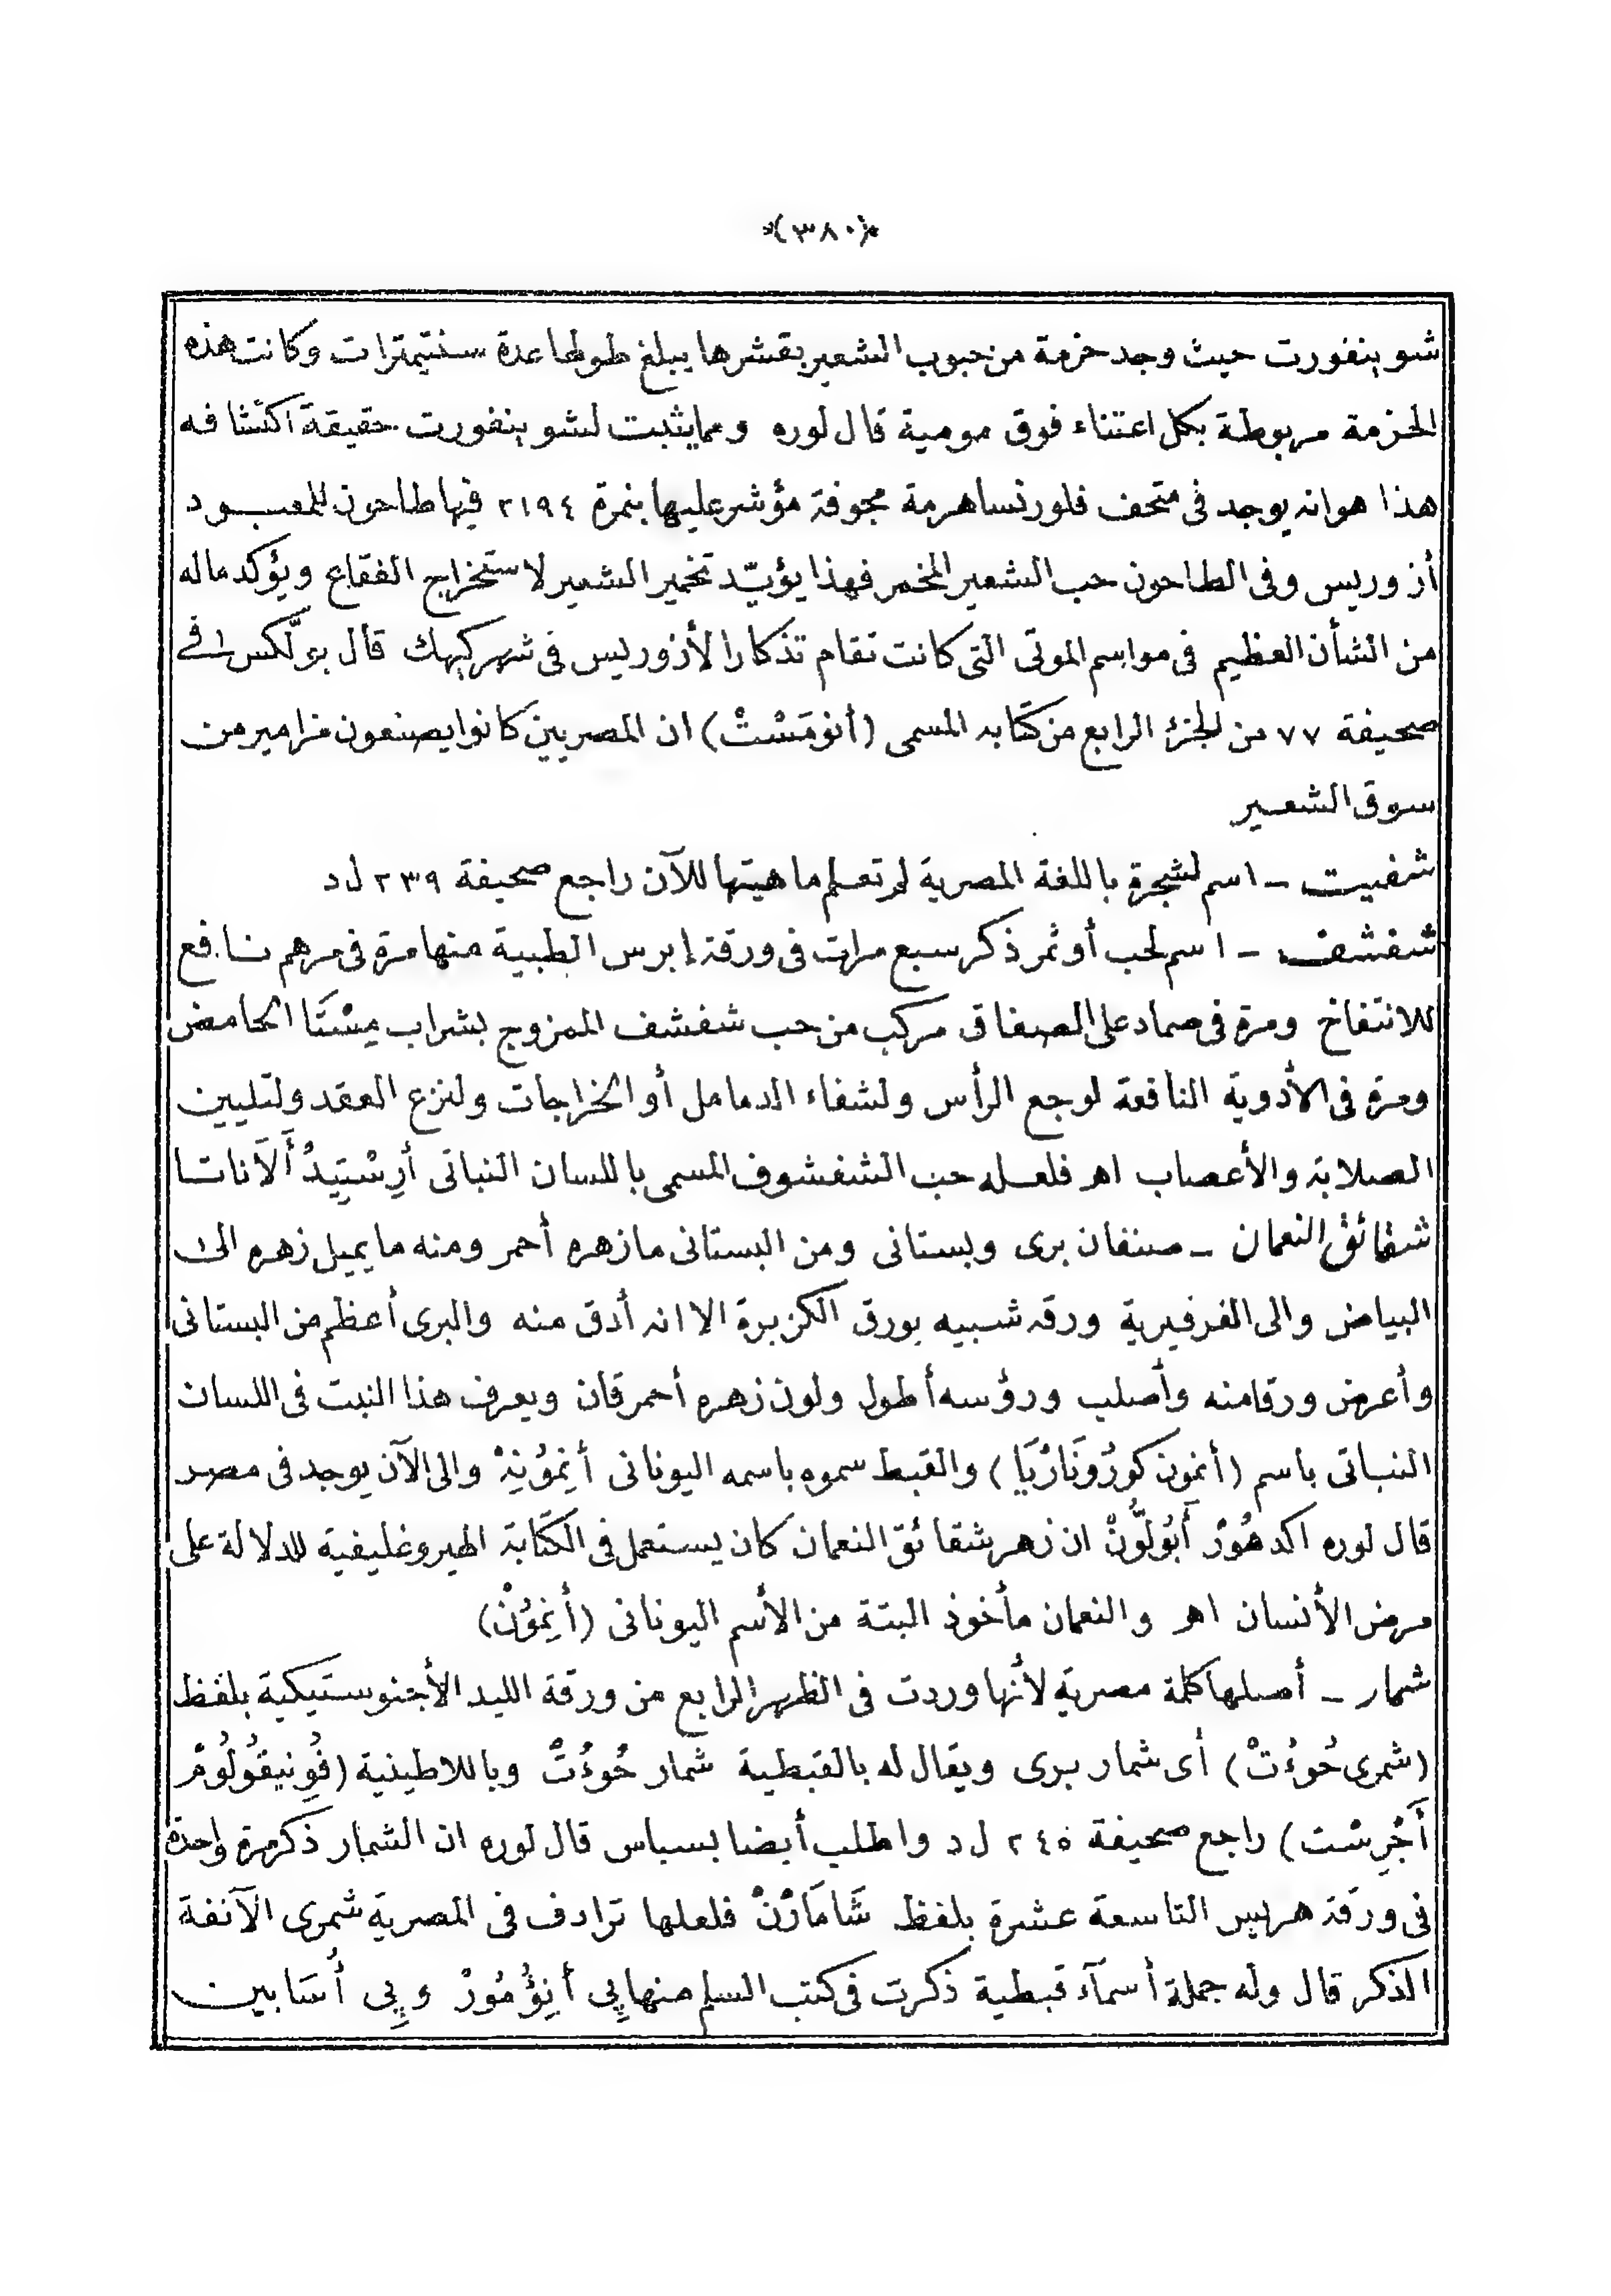 ﴿٣٨٠﴾
شوينفورت حيث وجد حزمة من حبوب الشعير بقشرها يبلغ طولها عدة سنتيمترات وكانت هذه
الحزمة مربوطة بكل اعتناء فوق مومية قال لوره ومما يثبت لشوينفورت حقيقة اكتشافه
هذا هو انه يوجد فى متحف فلورنسا هرمة مجوفة مؤشر عليها بنمرة ٢١٩٤ فيها طاحون للمعبود
أزوريس وفى الطاحون حب الشعير المخمر فهذا يؤيّد تخمير الشعير لاستخراج الفقاع ويؤكد ماله
من الشأن العظيم فى مواسم الموتى التى كانت تقام تذكارا لأزوريس فى شهر كيهك قال بولّكس فى
صحيفة ٧٧ من الجزء الرابع من كتابه المسمى (أنومَسْتْ) ان المصريين كانوا يصنعون مزامير من
سوق الشعير
شفيت ـ اسم لشجرة باللغة المصرية لم تعلم ماهيتها للآن راجع صحيفة ٢٣٩ ل د
شفشف ـ اسم لحب أو ثمر ذكر سبع مرات فى ورقة إبرس الطبية منها مرة فى مرهم نافع
للانتفاخ ومرة فى ضماد على الصفاق مركب من حب شفشف الممزوج بشراب مِسْتَا الحامض
ومرة فى الأدوية النافعة لوجع الرأس ولشفاء الدمامل أو الخراجات ولنزع العقد ولتليين
الصلابة والأعصاب اهـ فلعله حب الشفشوف المسمى باللسان النباتى أرِسْتِيدُ أَلَاناتا
شقائق النعمان ـ صنفان برى وبستانى ومن البستانى ما زهره أحمر ومنه ما يميل زهره الى
البياض والى الفرفيرية ورقه شبيه بورق الكزبرة الا انه أدق منه والبرى أعظم من البستانى
وأعرض ورقا منه وأصلب ورؤسه أطول ولون زهره أحمر قان ويعرف هذا النبت فى اللسان
النباتى باسم (أنمون كورُونَارْيَا) والقبط سموه باسمه اليونانى أنِمُوْنِهْ والى الآن يوجد فى مصر
قال لوره اكد هُورْ أَبُولّونْ ان زهر شقائق النعمان كان يستعمل فى الكتابة الهيروغليفية للدلالة على
مرض الأنسان اهـ والنعمان مأخوذ البتة من الأسم اليونانى (أنِمُوْنْ)
شمار ـ أصلها كلمة مصرية لأنها وردت فى الظهر الرابع من ورقة الليد الأجنوستيكية بلفظ
(شمرى حُوءُتْ) أى شمار برى ويقال له بالقبطية شمار حُوءُتْ وباللاطينية (فُونيقُولُومْ
أَجْرِسْت) راجع صحيفة ٢٤٥ ل د واطلب أيضا بسباس قال لوره ان الشمار ذكر مرة واحدة
فى ورقة هريس التاسعة عشرة بلفظ شَامَارْنْ فلعلها ترادف فى المصرية شمرى الآنفة
الذكر قال وله جملة أسمآء قبطية ذكرت فى كتب السلم منها پِى أنِؤُمُورْ وپِى أُسَابين